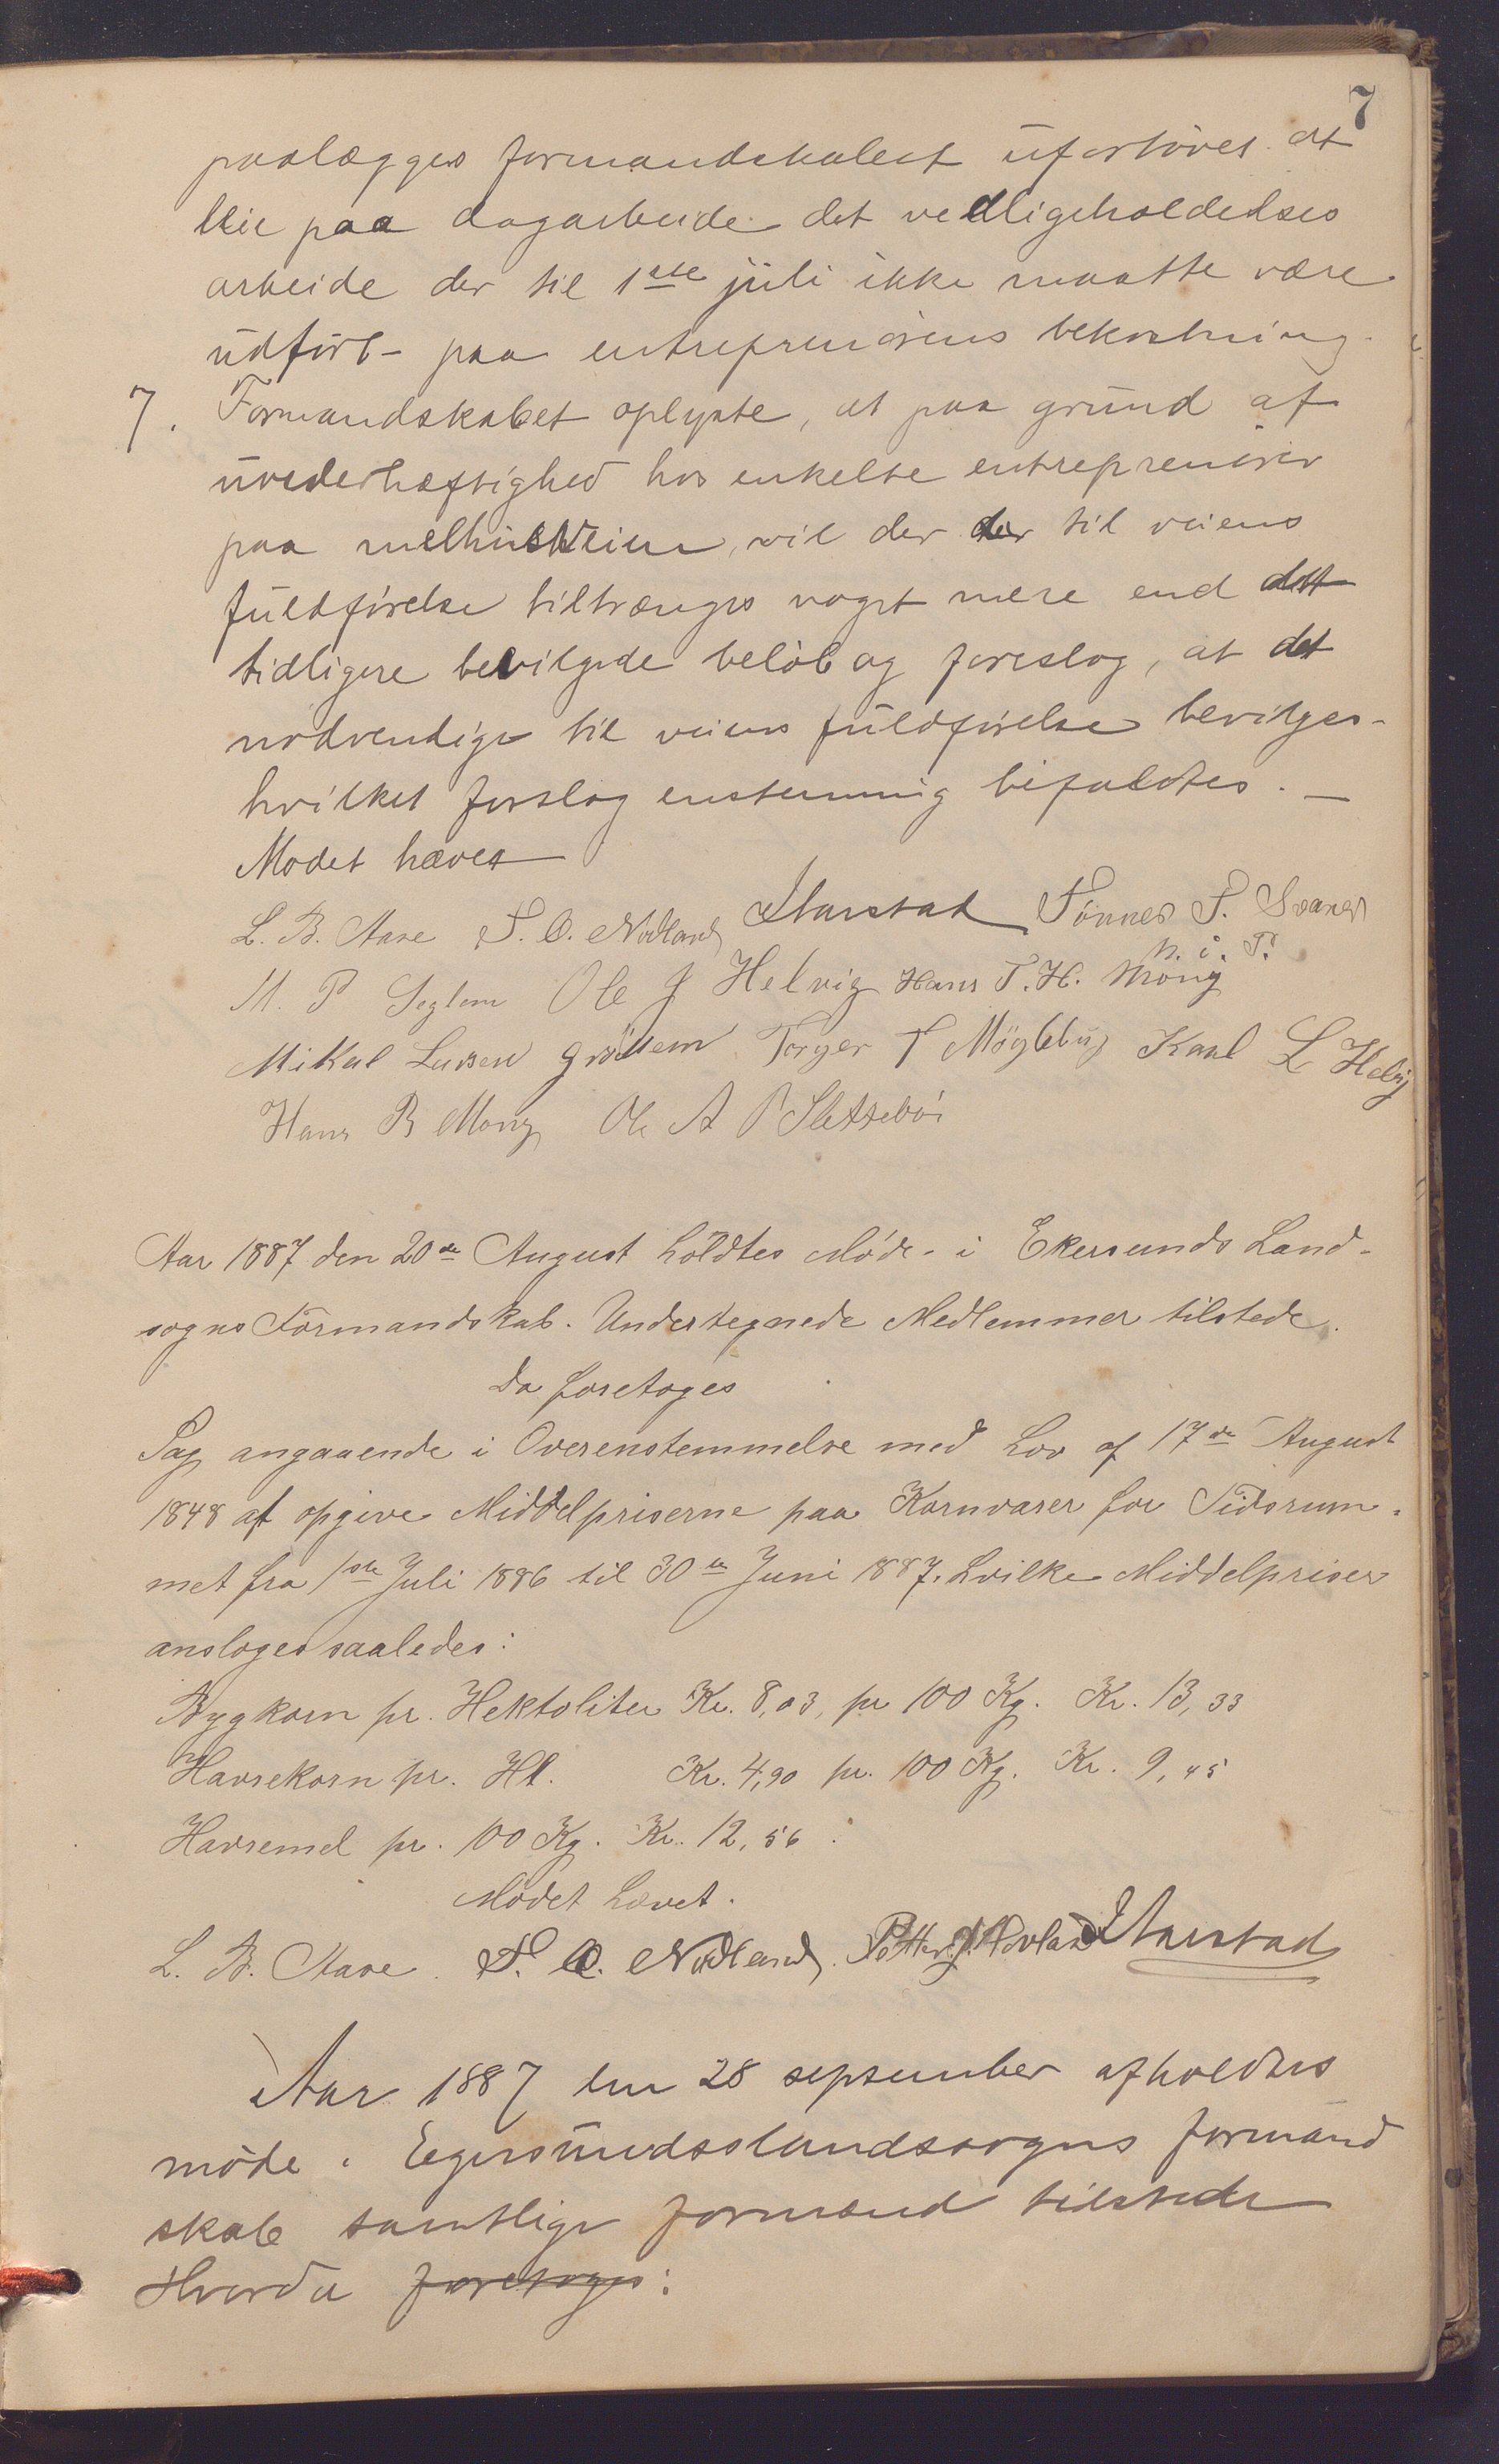 7
paalægges formandskabet ufortövet at
leie paa dagarbeide det vedligeholdelses
arbeide der til 1ste juli ikke maatte være
udført - paa entreprenørens bekostning.
7. Formandskabet oplyste, at paa grund af
uvederhæftighed hos enkelte entreprenører
paa melhusveien, vil der der til veiens
fuldførelse tiltrænges noget mere end dett
tidligere bevilgede beløb og foreslog, at det
nødvendige til veiens fuldførelse bevilges -
hvilket forslag enstemmig bifaldtes. -
Mødet hævet
L. B. Aase T. O. Nodland Starstad Tönnes T. Svanes
m. i. P.
M. P Seglem Ole J Helvig Hans T. H. Mong
Mikal Larsen Grøttem Torger T Mögbbuj Karl L Helvig
Hans B Mong Ole A P Slettebøi
Aar 1887 den 20de August holdtes Møde i Ekersunds Land-
sogns Formandskab. Undertegnede Medlemmer tilstede.
Da foretoges
Sag angaaende i Overenstemmelse med Lov af 17de August
1848 at opgive Middelpriserne paa Kornvarer for Tidsrum-
met fra 1ste Juli 1886 til 30te Juni 1887. hvilke Middelpriser
ansloges saaledes:
Bygkorn pr. Hektoliter Kr. 8,03, pr 100 Kg. Kr. 13,33
Havrekorn pr. Hl. Kr. 4,90 pr. 100 Kg. Kr. 9,45
Havremel pr. 100 Kg. Kr. 12,56.
Mødet hævet.
L. B. Aase. T. O. Nodland. Petter J. Hovland Starstad
Aar 1887 den 28 september afholdtes
møde i Egersundslandsogns formand
skab samtlige formænd tilstede
Hvorda foretoges: